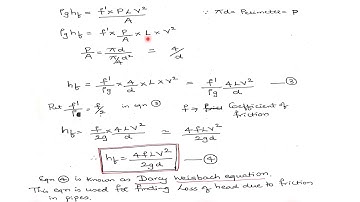 ρg h_f = f' × P L V² / A   ∵ πd = Perimeter = P
ρg h_f = f' × P/A × L × V²
P/A = πd / (π/4 d²) = 4/d
h_f = f'/ρg × 4/d × L × V² = f'/ρg 4LV²/d — ②
Put f'/ρ = f/2 in eqn ③   f → Coefficient of
friction
h_f = f/2g × 4LV²/d = 4fLV²/2gd
∴ h_f = 4fLV²/2gd — ④
Eqn ④ is known as Darcy Weisbach equation.
This eqn is used for finding loss of head due to friction
in pipes.